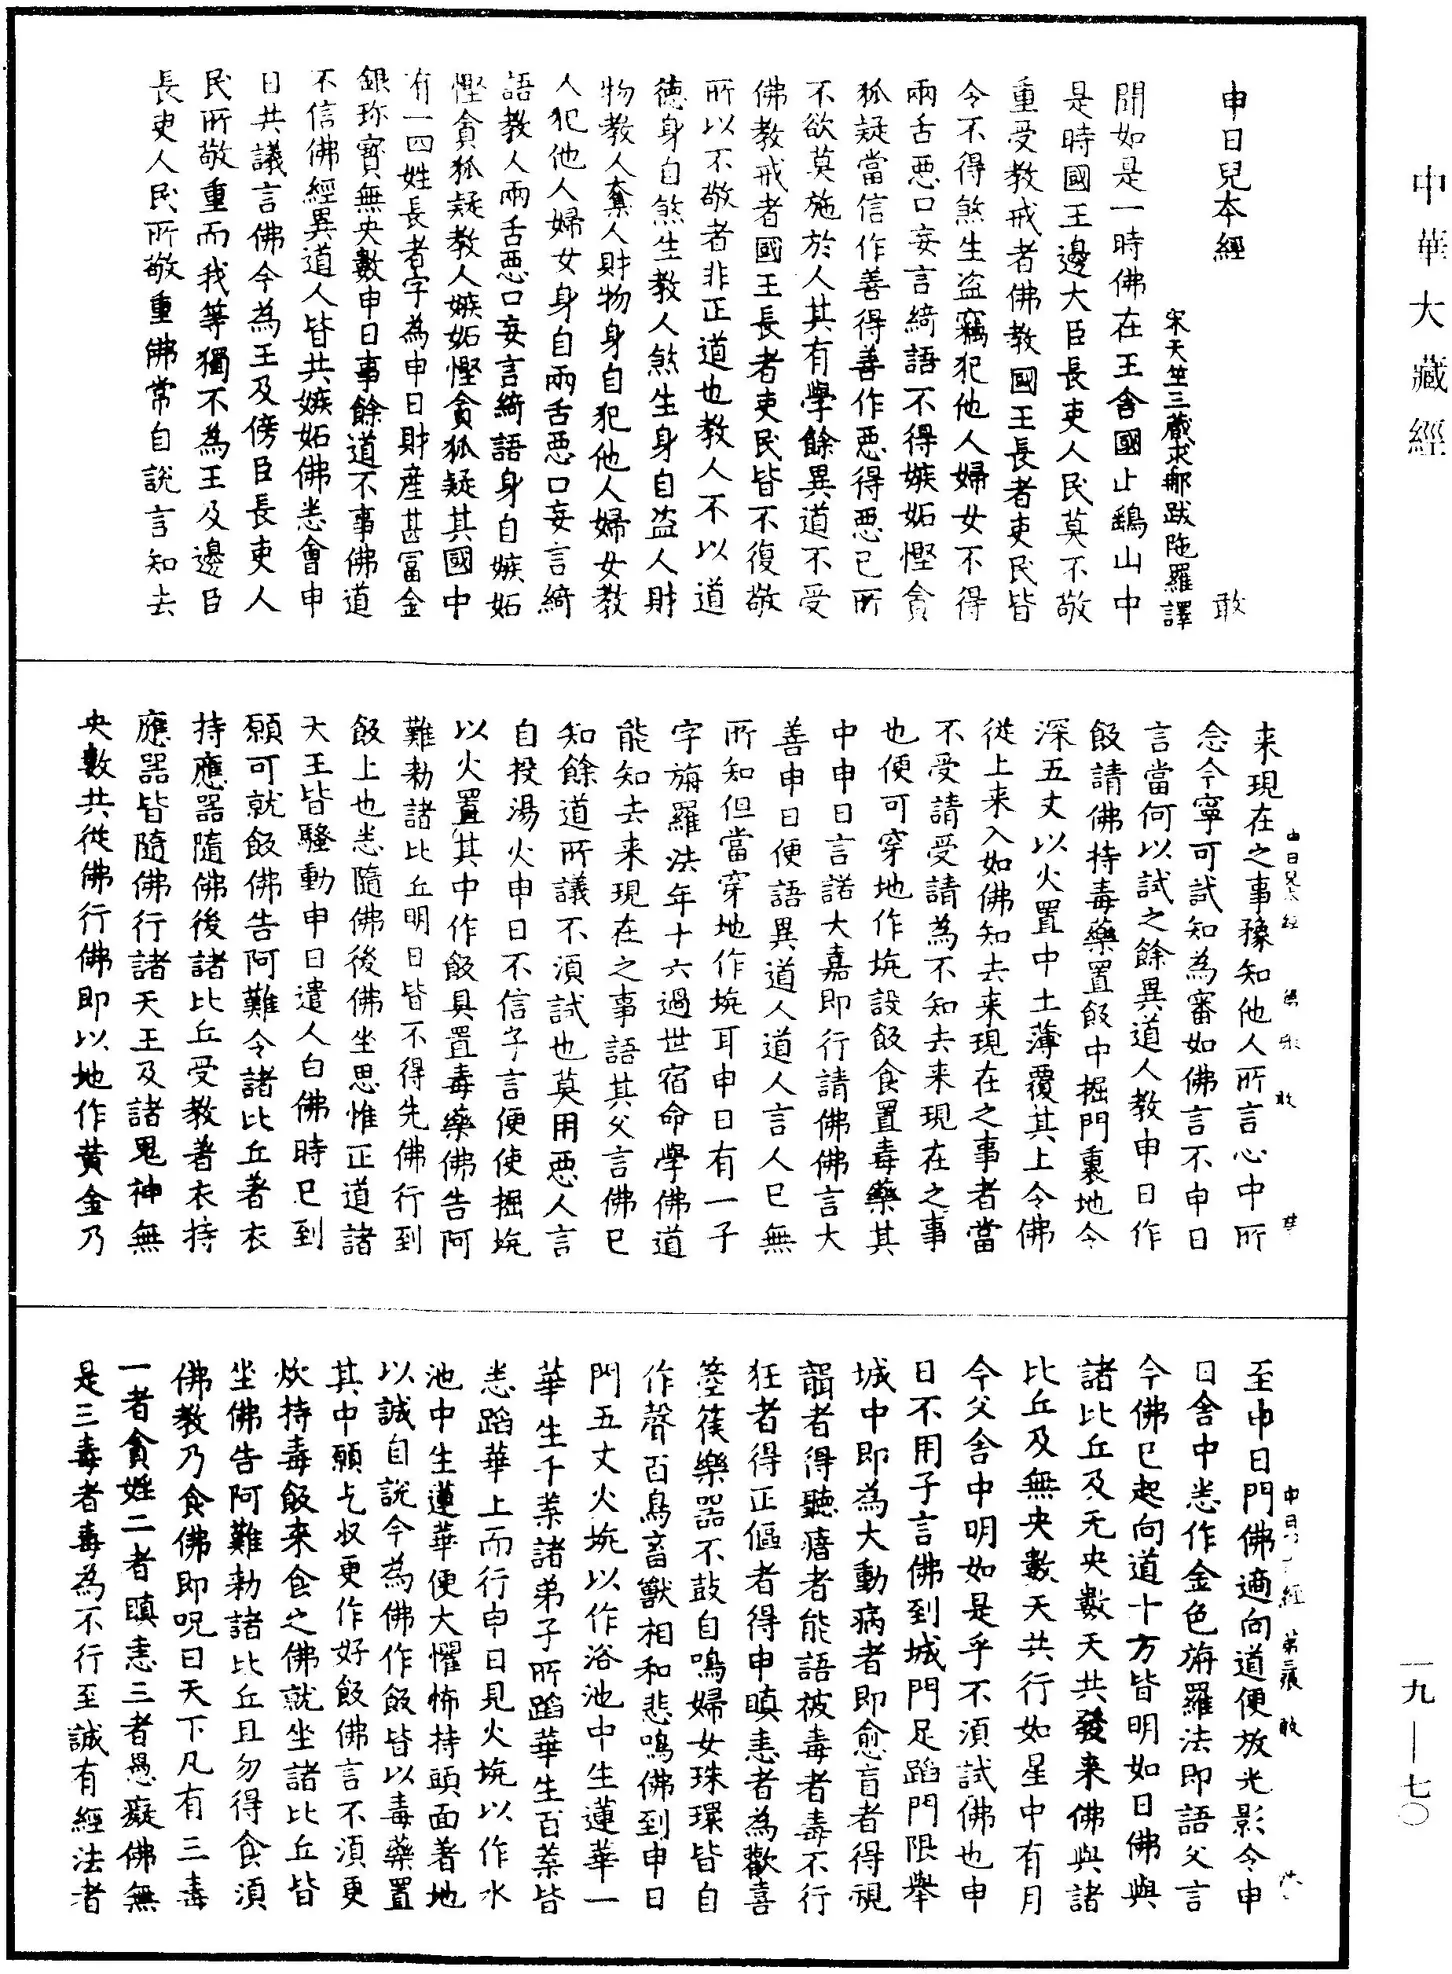 中華大藏經
申日兒本經　敢
宋天竺三藏求那跋陁羅譯
聞如是一時佛在王舍國止鷄山中
是時國王邊大臣長吏人民莫不敬
重受教戒者佛教國王長者吏民皆
令不得煞生盗竊犯他人婦女不得
兩舌惡口妄言綺語不得嫉妬慳貪
狐疑當信作善得善作惡得惡已所
不欲莫施於人其有學餘異道不受
佛教戒者國王長者吏民皆不復敬
所以不敬者非正道也教人不以道
德身自煞生教人煞生身自盗人財
物教人棄人財物身自犯他人婦女教
人犯他人婦女身自兩舌惡口妄言綺
語教人兩舌惡口妄言綺語身自嫉妬
慳貪狐疑教人嫉妬慳貪狐疑其國中
有一四姓長者字為申日財產甚富金
銀珎寳無央數申日事餘道不事佛道
不信佛經異道人皆共嫉妬佛悉會申
日共議言佛今為王及傍臣長吏人
民所敬重而我等獨不為王及邊臣
長吏人民所敬重佛常自說言知去
来現在之事豫知他人所言心中所
念今寧可試知為審如佛言不申日
言當何以試之餘異道人教申日作
飯請佛持毒藥置飯中掘門裏地令
深五丈以火置中土薄覆其上令佛
從上来入如佛知去来現在之事者當
不受請受請為不知去来現在之事
也便可穿地作坑設飯食置毒藥其
中申日言諾大嘉即行請佛佛言大
善申日便語異道人道人言人已無
所知但當穿地作坑耳申日有一子
字旃羅法年十六過世宿命學佛道
能知去来現在之事語其父言佛已
知餘道所議不須試也莫用惡人言
自投湯火申日不信子言便使掘坑
以火置其中作飯具置毒藥佛告阿
難勑諸比丘明日皆不得先佛行到
飯上也悉隨佛後佛坐思惟正道諸
天王皆騷動申日遣人白佛時已到
願可就飯佛告阿難令諸比丘著衣
持應器隨佛後諸比丘受教著衣持
應器皆隨佛行諸天王及諸鬼神無
央數共從佛行佛即以地作黃金乃
至申日門佛適向道便放光影令申
日舍中悉作金色旃羅法即語父言
今佛已起向道十方皆明如日佛與
諸比丘及无央數天共發来佛與諸
比丘及無央數天共行如星中有月
今父舍中明如是乎不須試佛也申
日不用子言佛到城門足蹈門限舉
城中即為大動病者即愈盲者得視
聾者得聽瘖者能語被毒者毒不行
狂者得正傴者得申瞋恚者為歡喜
箜篌樂器不鼓自鳴婦女珠環皆自
作聲百鳥畜獸相和悲鳴佛到申日
門五丈火坑以作浴池中生蓮華一
華生千葉諸弟子所蹈華生百葉皆
悉蹈華上而行申日見火坑以作水
池中生蓮華便大懼怖持頭面著地
以誠自說今為佛作飯皆以毒藥置
其中願乞収更作好飯佛言不須更
炊持毒飯来食之佛就坐諸比丘皆
坐佛告阿難勑諸比丘且勿得食須
佛教乃食佛即呪曰天下凡有三毒
一者貪婬二者瞋恚三者愚癡佛無
是三毒者毒為不行至誠有經法者
一九—七〇